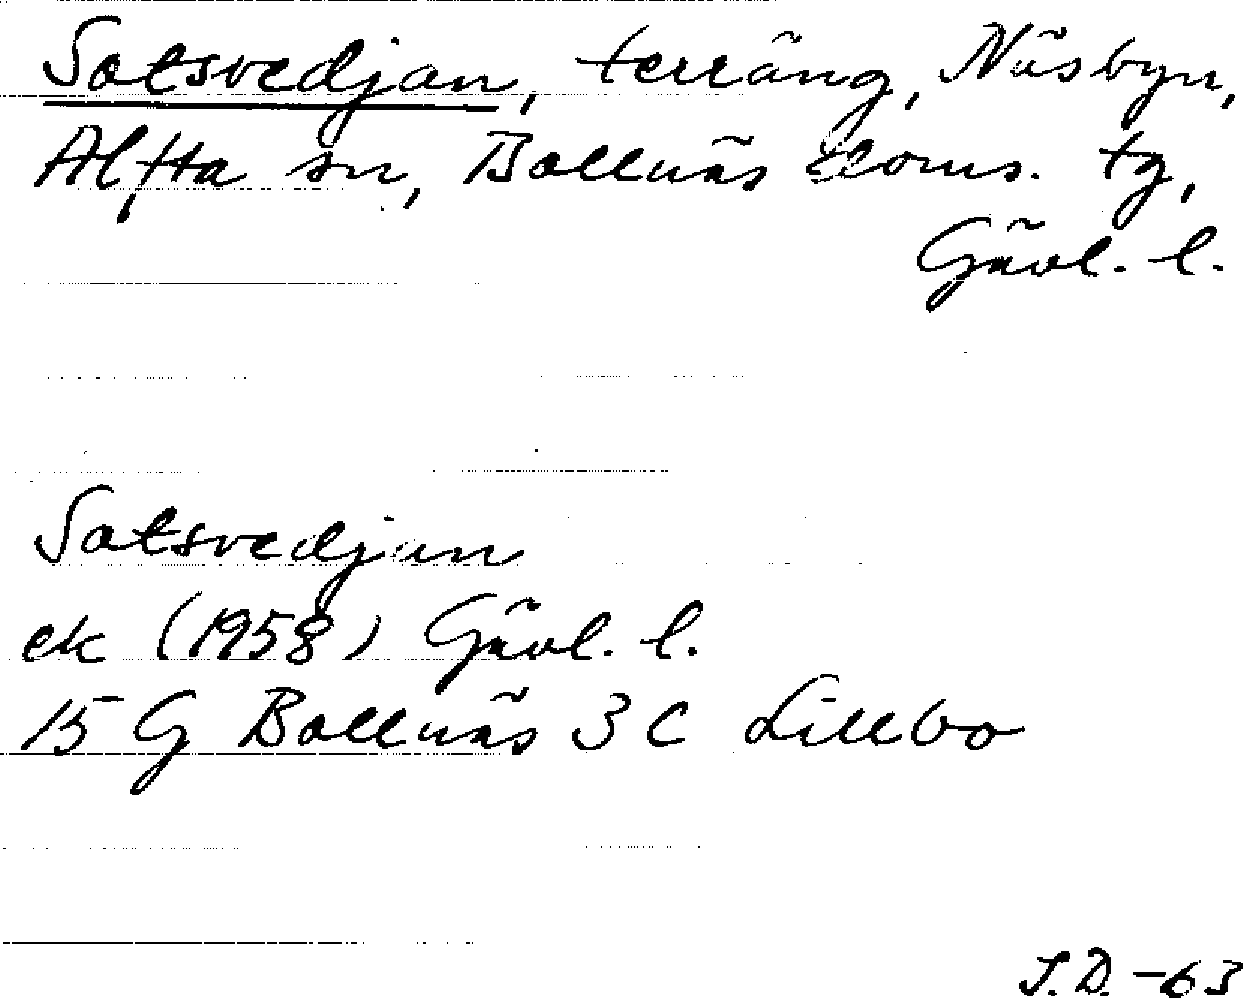 Satsvedjan, terräng, Näsbyn,
Alfta sn, Bollnäs doms. tg,
Gävl. l.
Satsvedjan
ek (1958) Gävl. l.
15 G Bollnäs 3 C Lillbo
S.D. -63